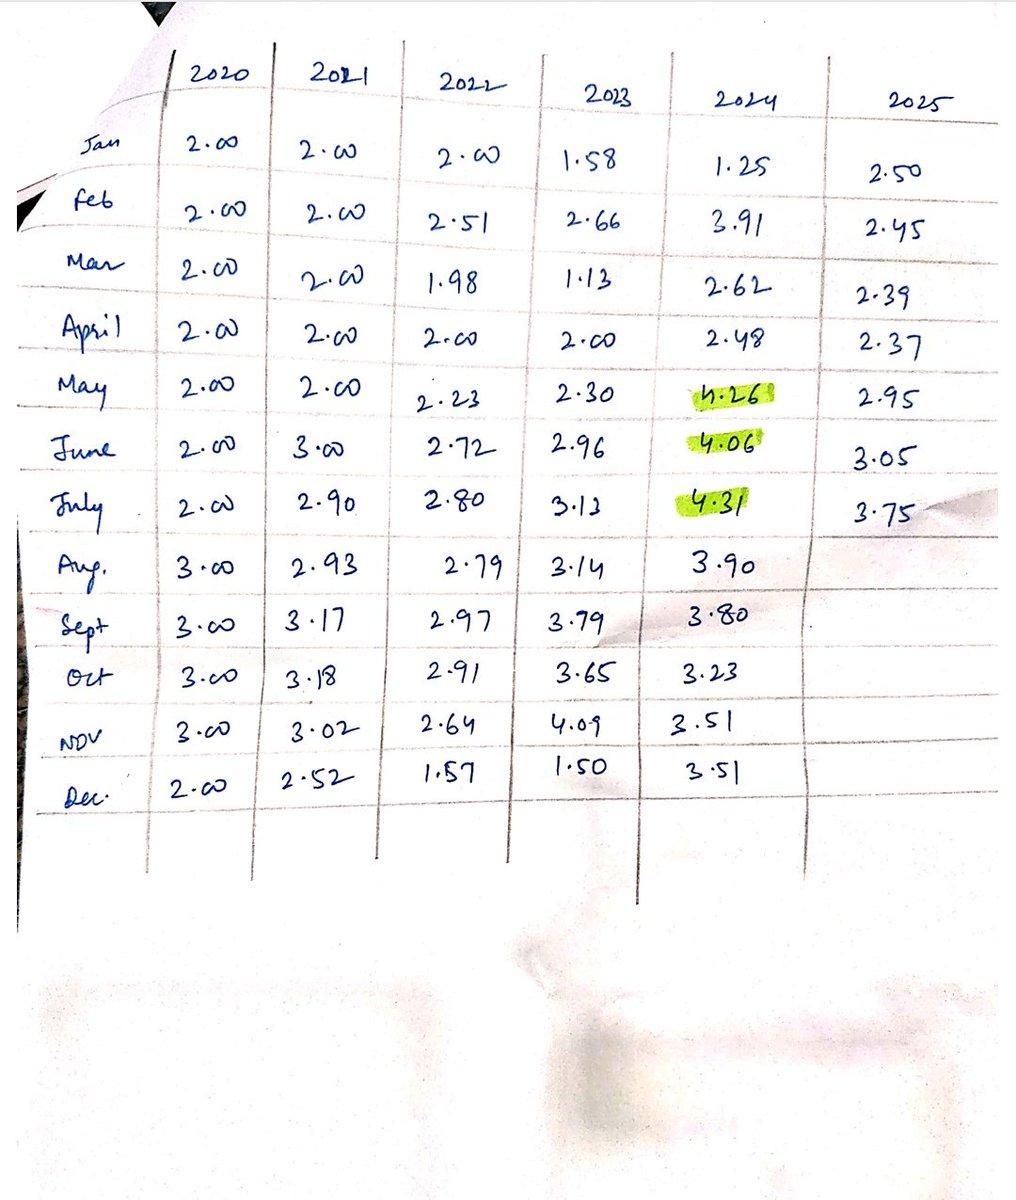 2020 2021 2022 2023 2024 2025
Jan 2.00 2.00 2.00 1.58 1.25 2.50
Feb 2.00 2.00 2.51 2.66 3.91 2.45
Mar 2.00 2.00 1.98 1.13 2.62 2.39
April 2.00 2.00 2.00 2.00 2.48 2.37
May 2.00 2.00 2.23 2.30 4.26 2.95
June 2.00 3.00 2.72 2.96 4.06 3.05
July 2.00 2.90 2.80 3.13 4.31 3.75
Aug. 3.00 2.93 2.79 3.14 3.90
Sept 3.00 3.17 2.97 3.79 3.80
Oct 3.00 3.18 2.91 3.65 3.23
NOV 3.00 3.02 2.64 4.09 3.51
Dec. 2.00 2.52 1.57 1.50 3.51